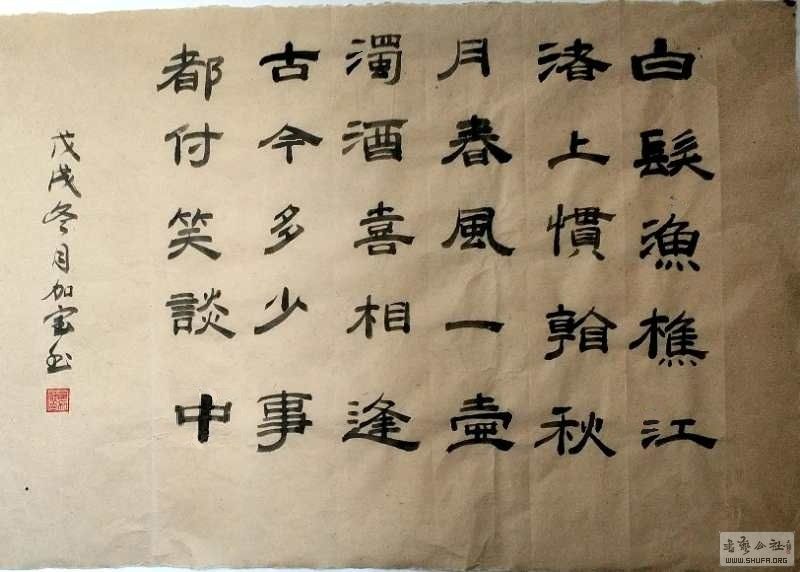 白髮漁樵江
渚上慣秋
月春風一壺
濁酒喜相逢
古今多少事
都付笑談中
戊戌冬月加宝书
書藝公社
WWW.SHUFA.ORG